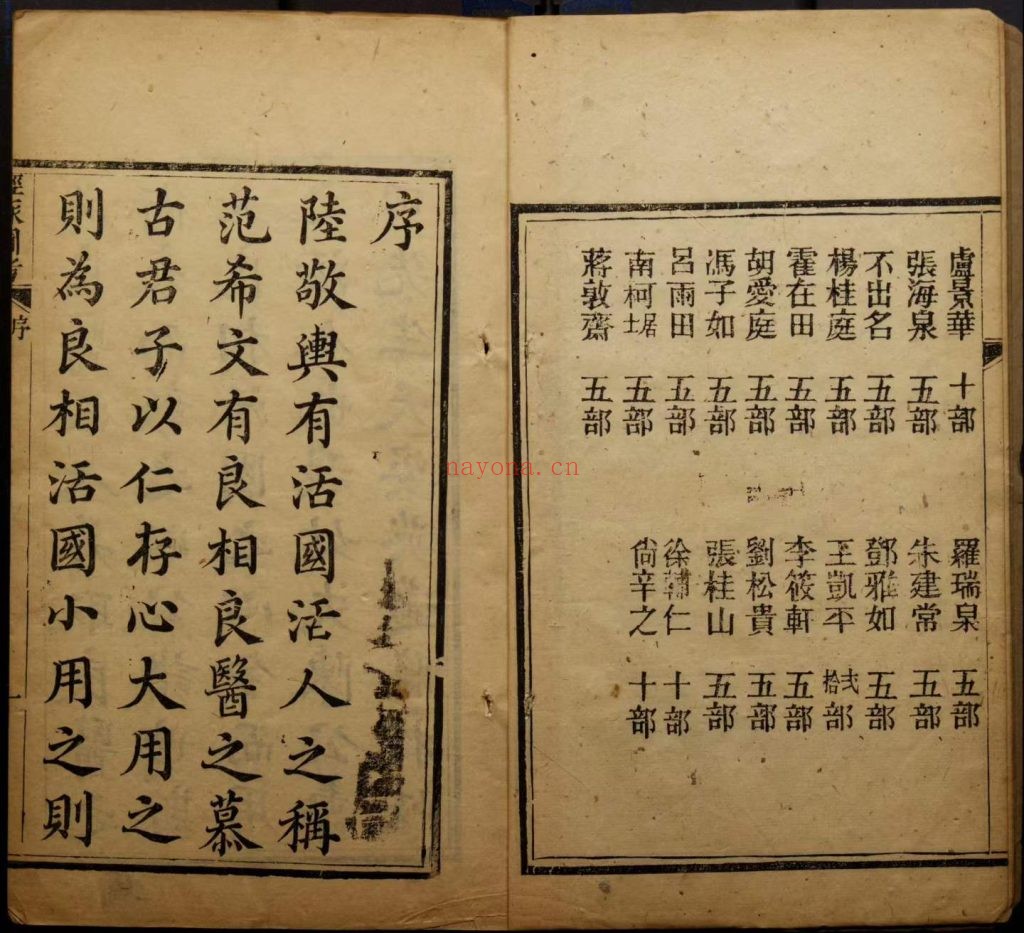 盧景華 十部
張海泉 五部
不出名 五部
楊桂庭 五部
霍在田 五部
胡愛庭 五部
馮子如 五部
呂雨田 五部
南柯堀 五部
蔣敦齋 五部
羅瑞泉 五部
朱建常 五部
鄧雅如 五部
王凱平 弍拾部
李筱軒 五部
劉松貴 五部
張桂山 五部
徐輔仁 十部
尙辛之 十部
序
陸敬輿有活國活人之稱
范希文有良相良醫之慕
古君子以仁存心大用之
則為良相活國小用之則
序
一
nayona.cn